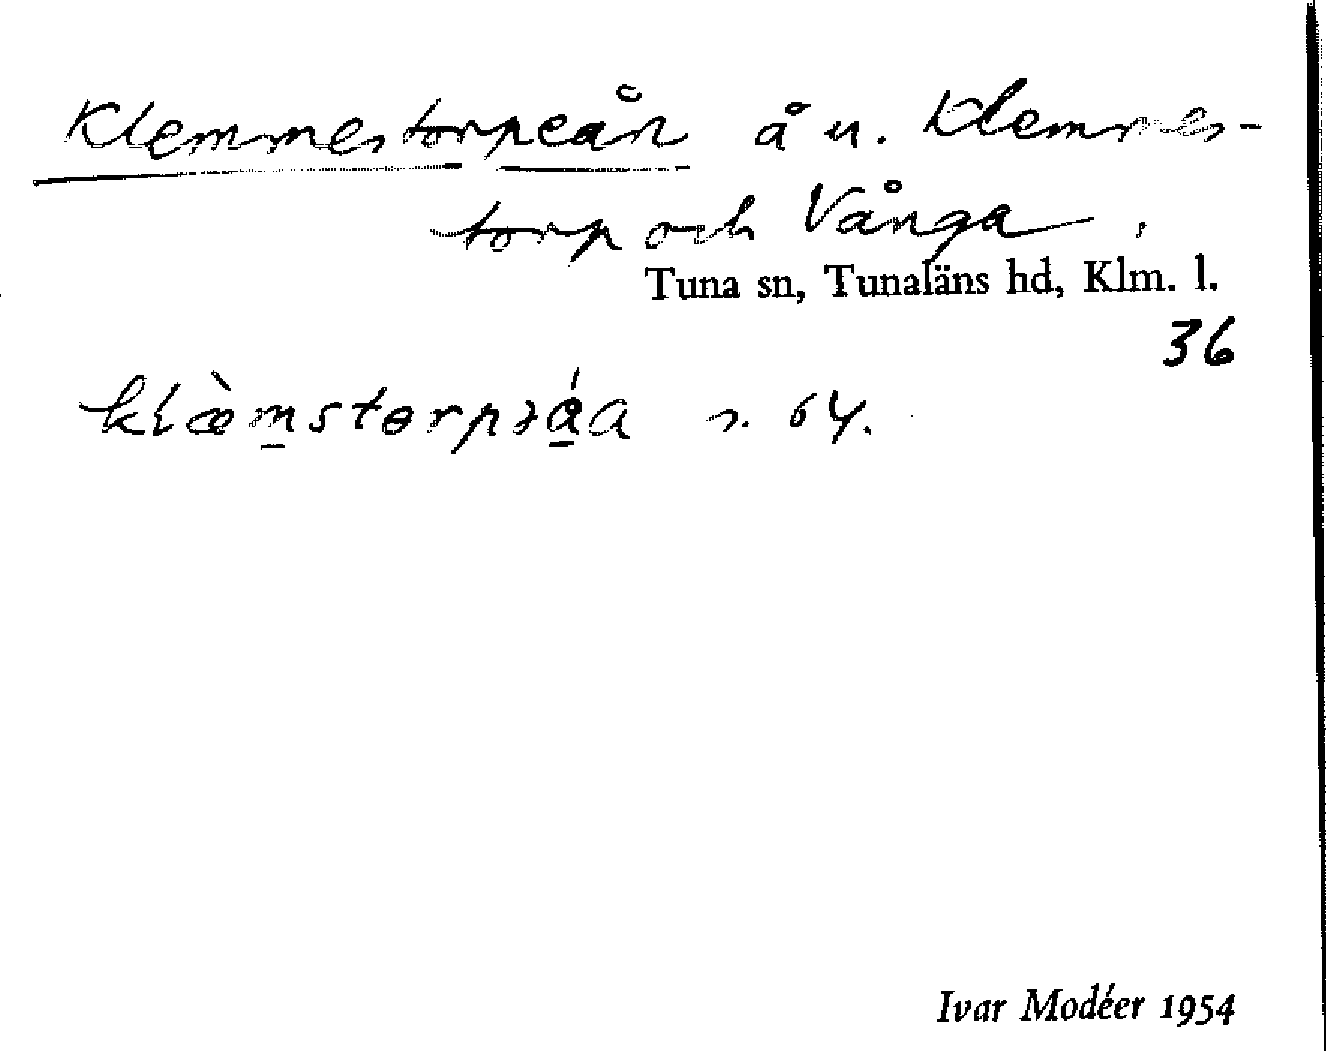 Klemmestorpeån å u. Klemmes-
torp och Vånga.
Tuna sn, Tunaläns hd, Klm. l.
36
s. 64.
Ivar Modéer 1954